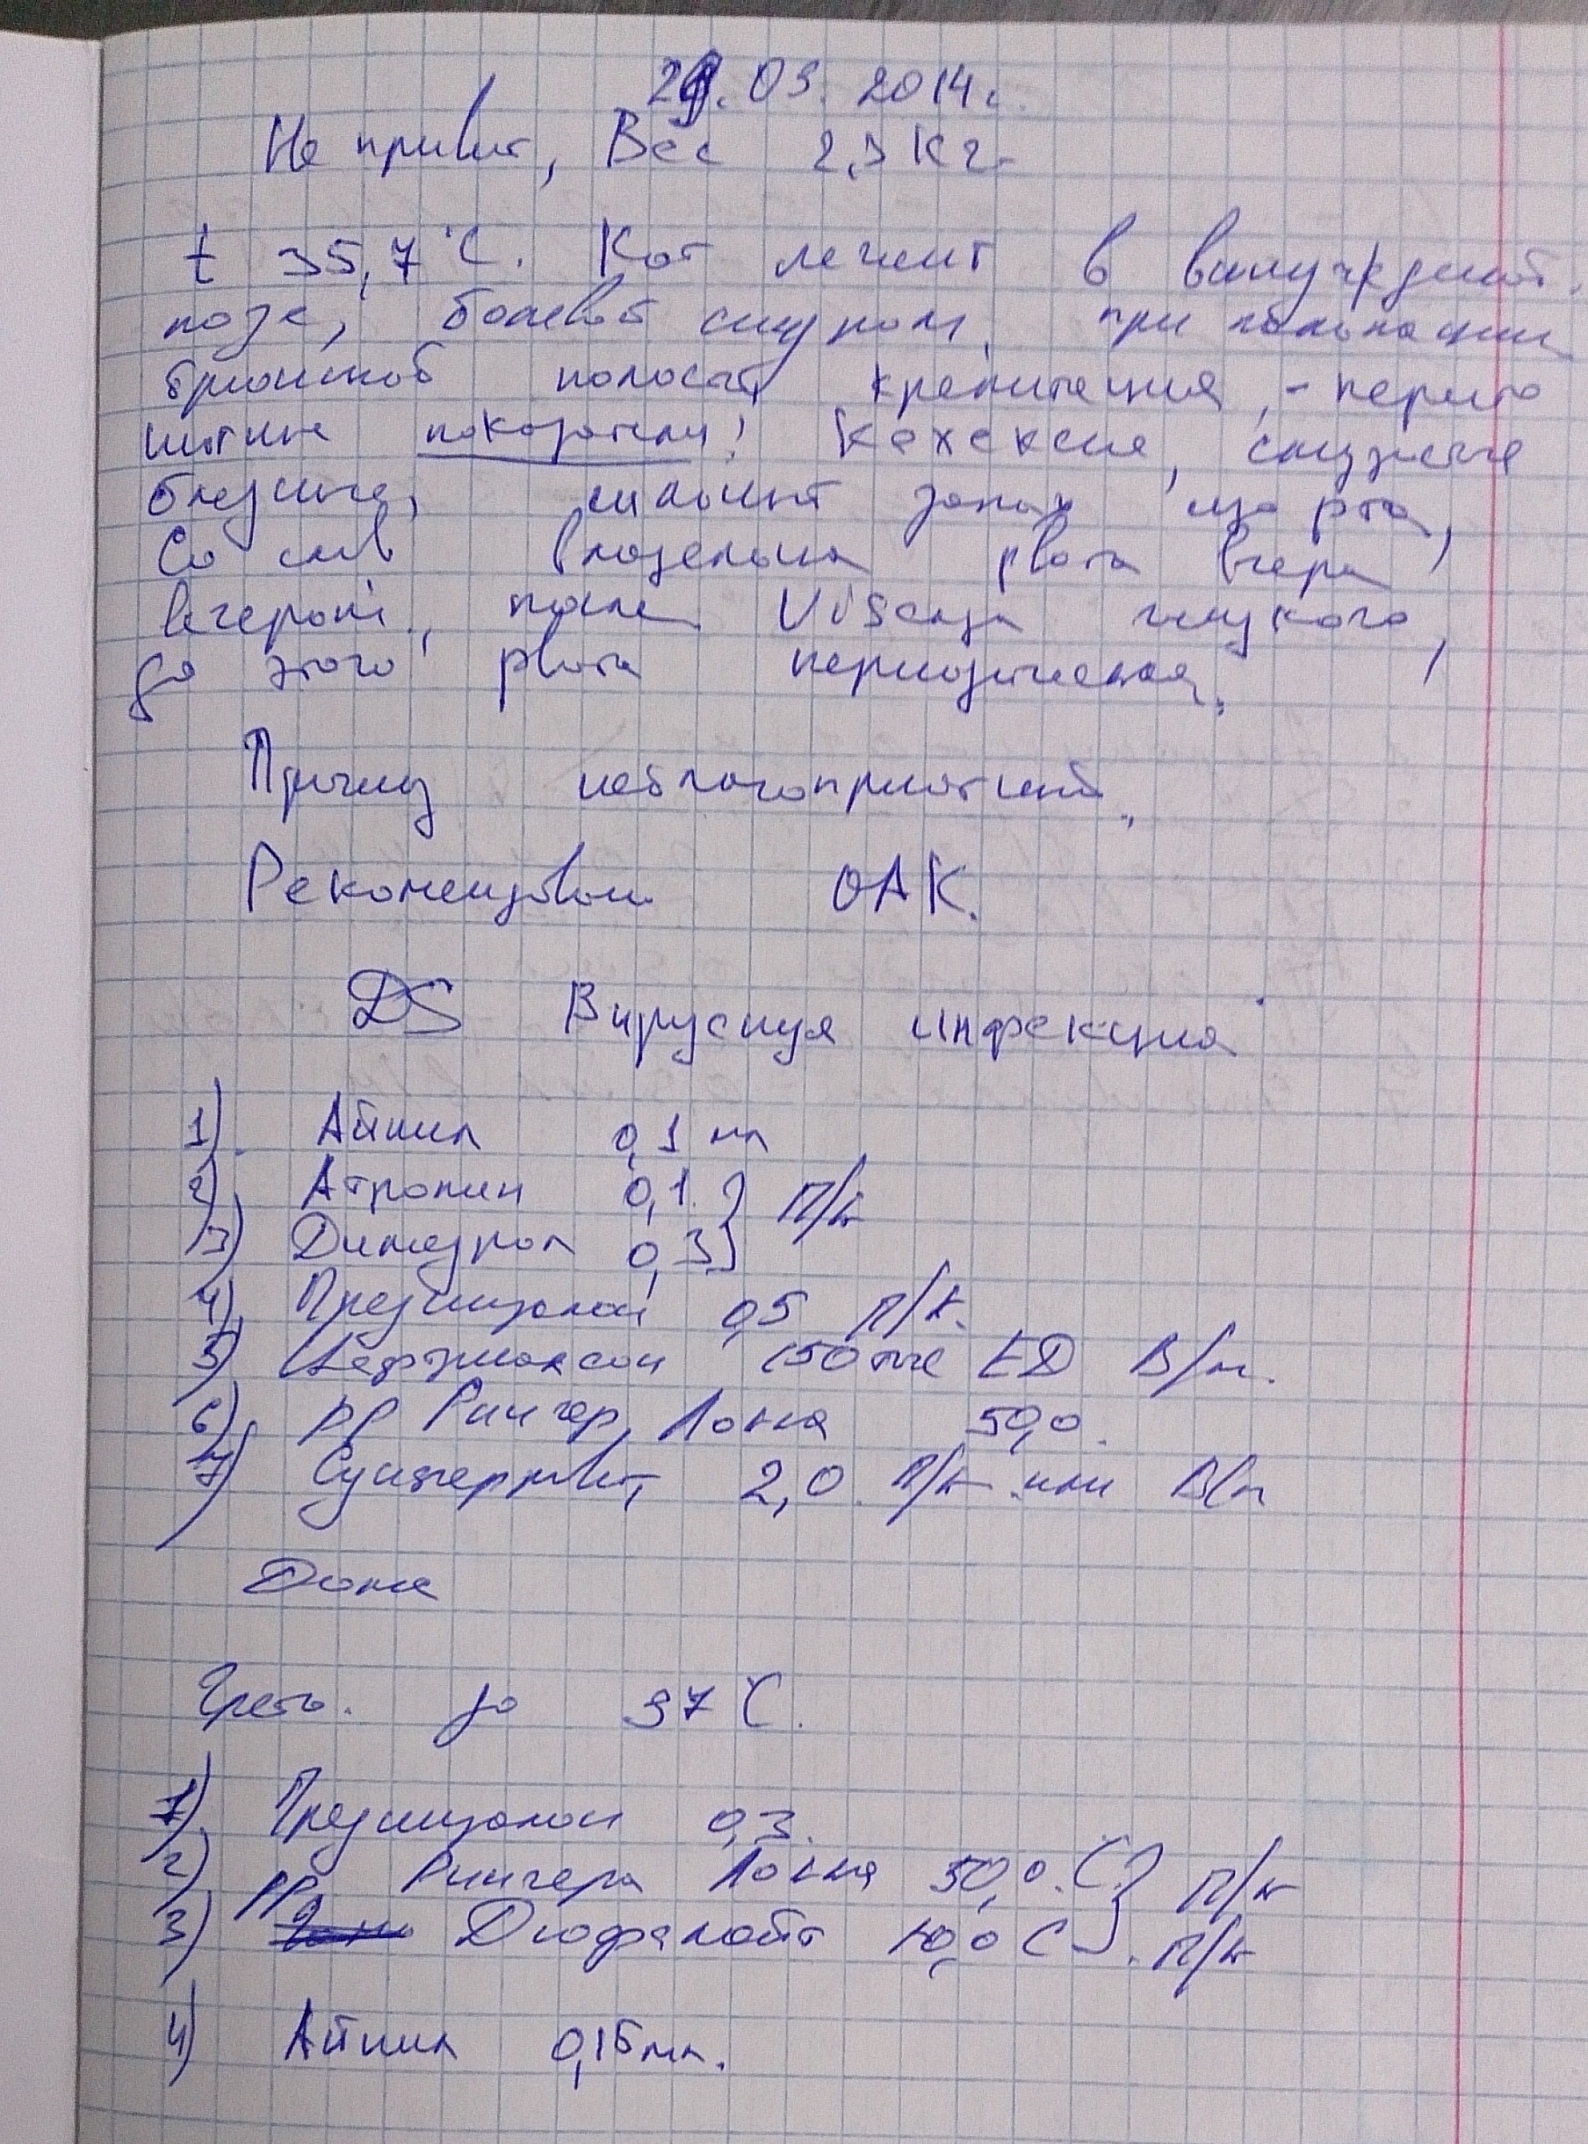 29.03.2014г.
Не привит, Вес 2,3 кг.
t 35,7°C. Кот лежит в вынужденной
позе, болевой синдром, при пальпации
брюшной полости крепитация, - перито
нитные показатели! Кахексия, слизистые
бледные, запах изо рта,
Со слов владельца рвота вчера
вечером, после Viscaца жидкого,
до этого рвота периодическая.
Прогноз неблагоприятный.
Рекомендован ОАК.
DS Вирусная инфекция
1) Айнил 0,1 мл
2) Атропин 0,1
3) Димедрол 0,3 П/к
4) Преднизолон 0,5 П/к.
5) Цефтриаксон 150 тыс ЕД В/м.
6) рр Рингер Локка 50,0.
7) 2,0 П/к или В/м
Дома
Греть. до 37°C.
1) Преднизолон 0,3.
2) рр Рингера Локка 50,0 П/к
3) Дюфалайт 10,0 П/к
4) Айнил 0,15 мл.